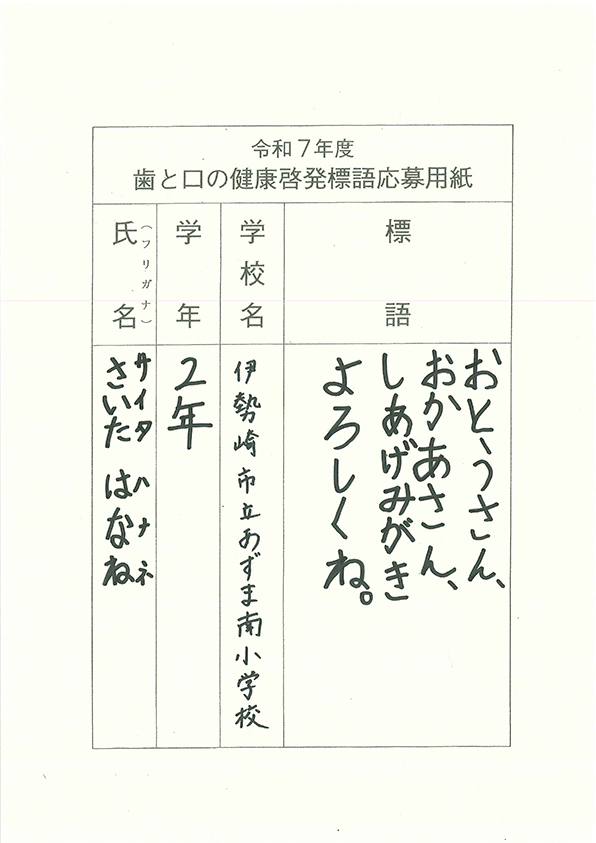 令和７年度
歯と口の健康啓発標語応募用紙
標語
おとうさん、
おかあさん、
しあげみがき
よろしくね。
学校名
伊勢崎市立あずま南小学校
学年
２年
氏名
（フリガナ）
サイタ ハナネ
さいた はなね